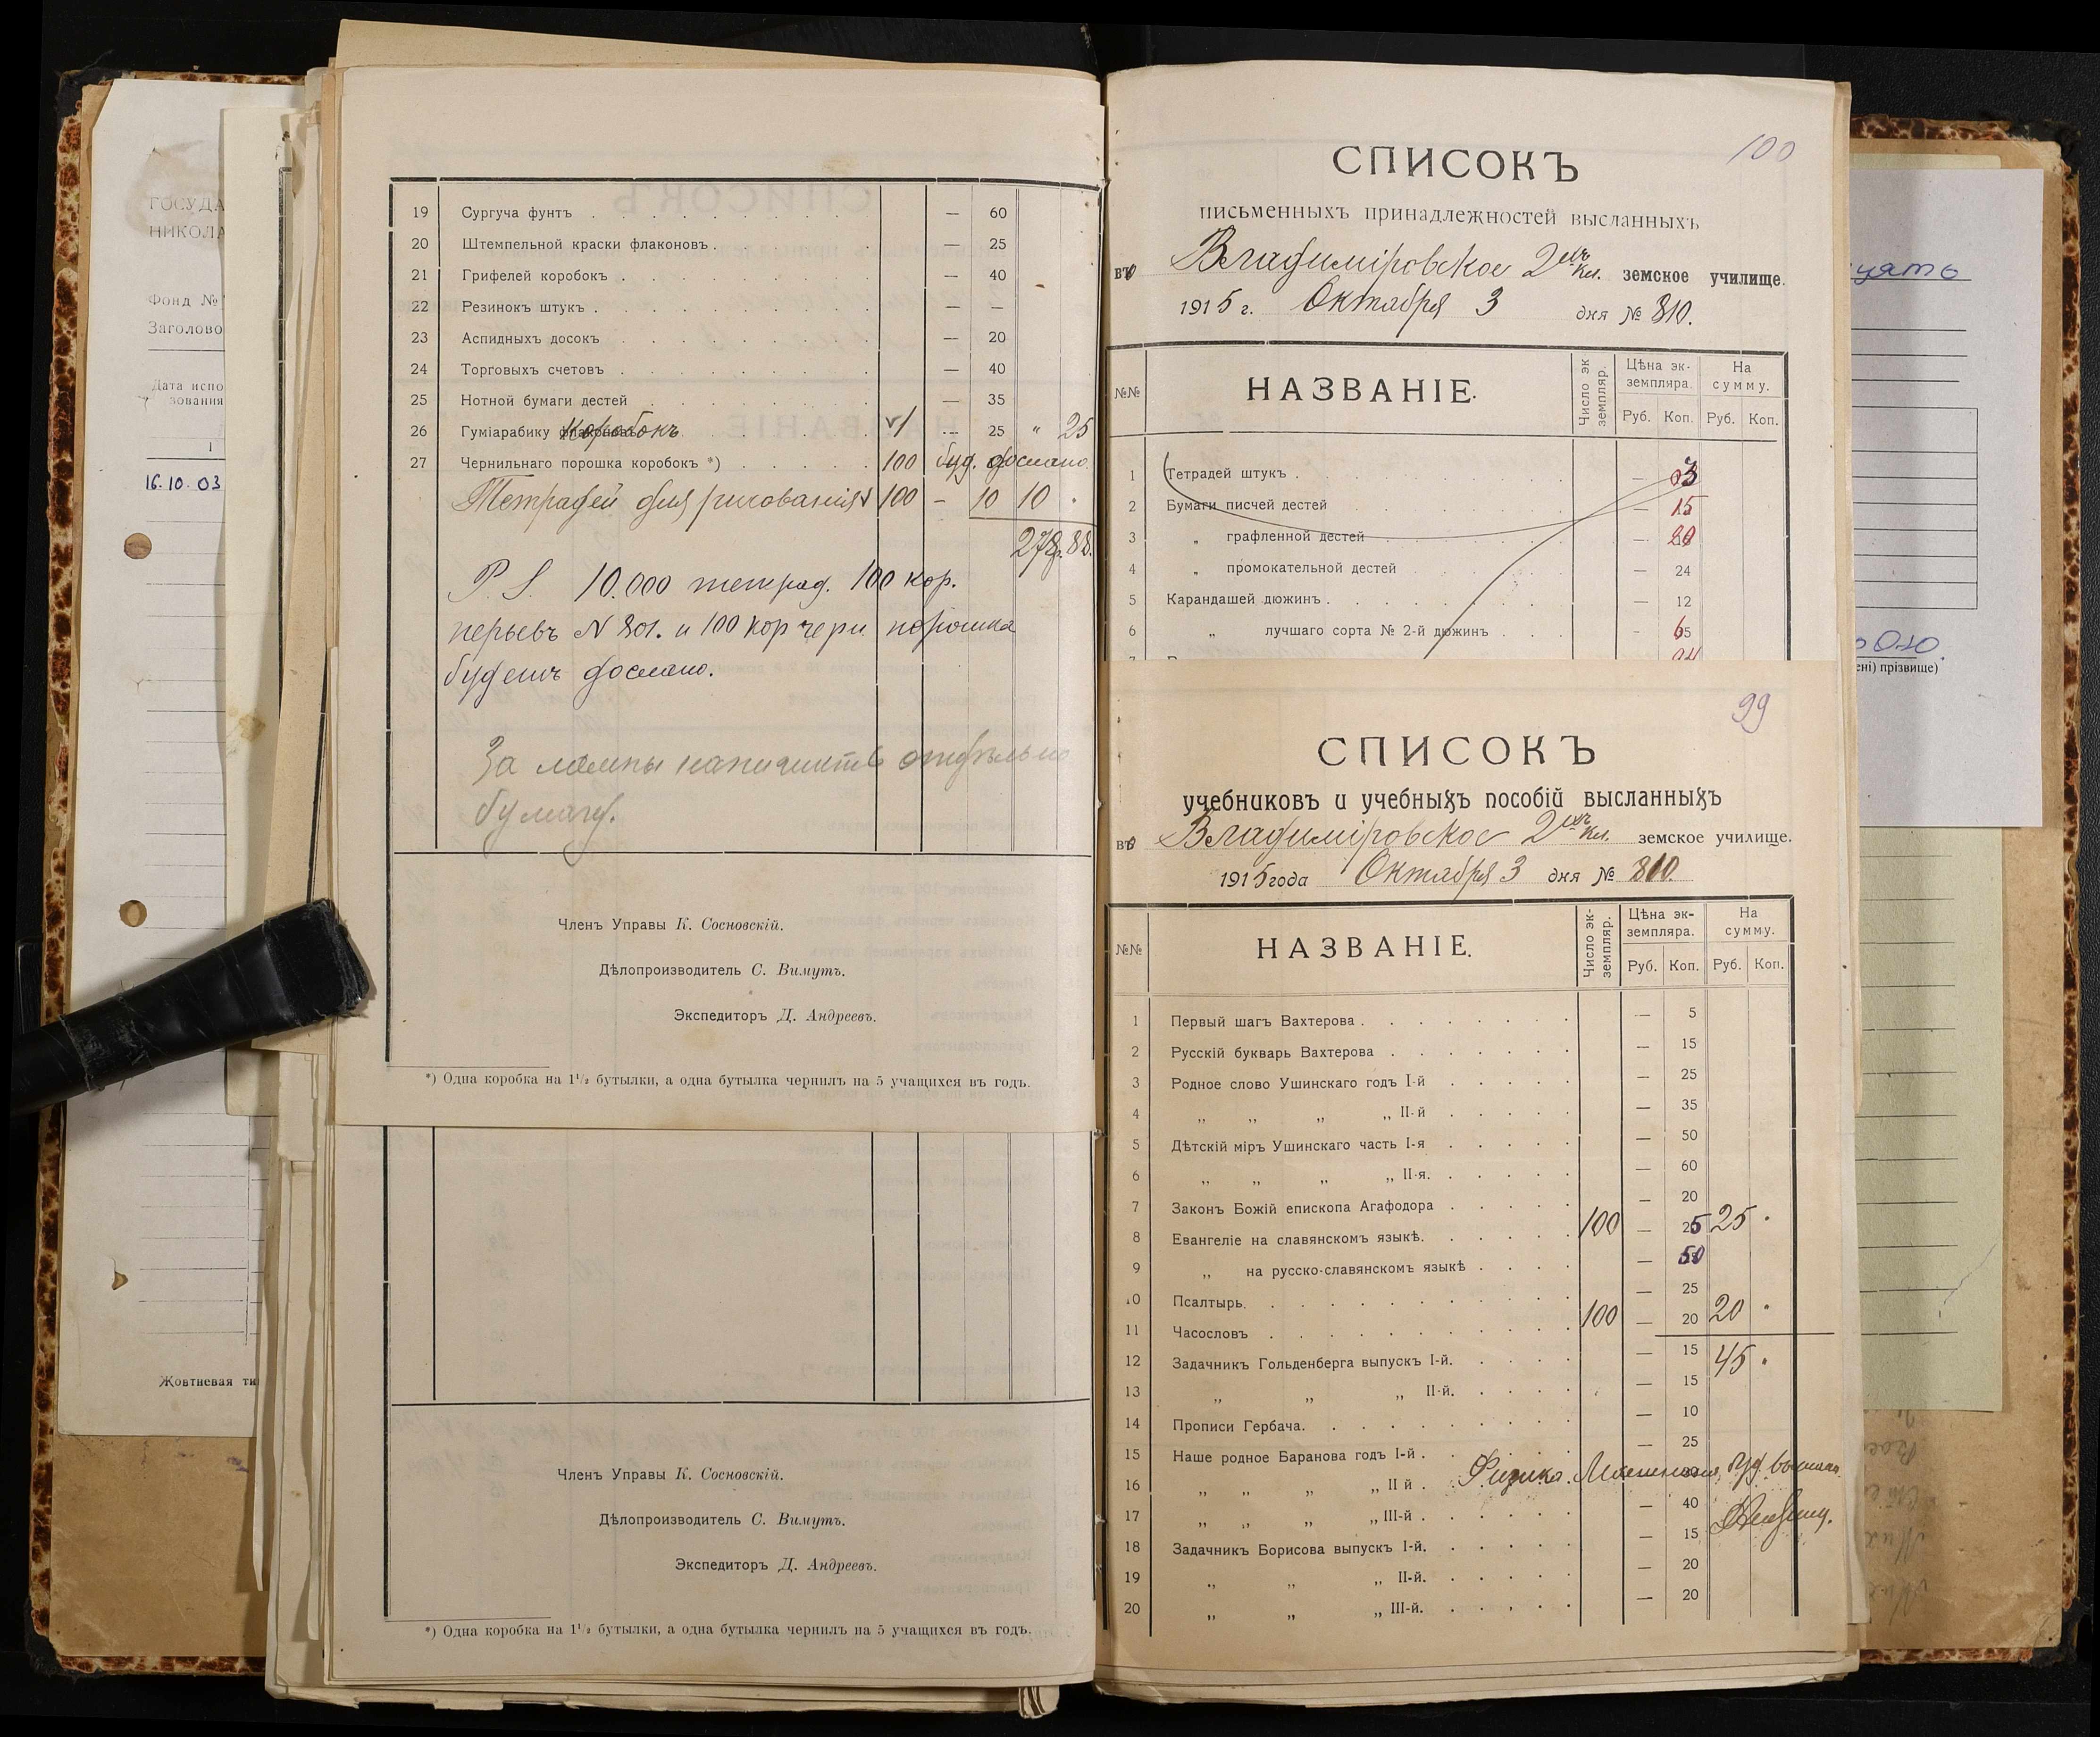 ГОСУДА
НИКОЛА
Фонд №
Заголово
Дата испо
зования
1
16.10.03
Жовтневая ти
19 Сургуча фунтъ — 60
20 Штемпельной краски флаконовъ — 25
21 Грифелей коробокъ — 40
22 Резинокъ штукъ — —
23 Аспидныхъ досокъ — 20
24 Торговыхъ счетовъ — 40
25 Нотной бумаги дестей — 35
26 Гуміарабику коробокъ 1 — 25 " 25
27 Чернильнаго порошка коробокъ *) 100 буд. дослано
Тетрадей для рисованія 100 — 10 10 .
278р. 88.
P. S. 10.000 тетрад. 100 кор.
перьевъ N 801. и 100 кор черн. порошка
будетъ дослано.
За лампы напишите отдѣльно
бумагу.
Членъ Управы К. Сосновскій.
Дѣлопроизводитель С. Вимутъ.
Экспедиторъ Д. Андреевъ.
*) Одна коробка на 1½ бутылки, а одна бутылка чернилъ на 5 учащихся въ годъ.
Членъ Управы К. Сосновскій.
Дѣлопроизводитель С. Вимутъ.
Экспедиторъ Д. Андреевъ.
*) Одна коробка на 1½ бутылки, а одна бутылка чернилъ на 5 учащихся въ годъ.
100
СПИСОКЪ
письменныхъ принадлежностей высланныхъ
во Владиміровское 2ухъ кл. земское училище.
1915 г. Октября 3 дня № 810.
№№ НАЗВАНІЕ. Число экземпляр. Цѣна экземпляра. На сумму.
Руб. Коп. Руб. Коп.
1 Тетрадей штукъ — 3
2 Бумаги писчей дестей — 15
3 „ графленной дестей — 20
4 „ промокательной дестей — 24
5 Карандашей дюжинъ — 12
6 „ лучшаго сорта № 2-й дюжинъ - 65
99
СПИСОКЪ
учебниковъ и учебныхъ пособій высланныхъ
во Владиміровское 2ухъ кл. земское училище.
1915 года Октября 3 дня № 810.
№№ НАЗВАНІЕ. Число экземпляр. Цѣна экземпляра. На сумму.
Руб. Коп. Руб. Коп.
1 Первый шагъ Вахтерова — 5
2 Русскій букварь Вахтерова — 15
3 Родное слово Ушинскаго годъ I-й — 25
4 „ „ „ „ II-й — 35
5 Дѣтскій міръ Ушинскаго часть I-я — 50
6 „ „ „ „ II-я. — 60
7 Законъ Божій епископа Агафодора — 20
8 Евангеліе на славянскомъ языкѣ. 100 — 25 25 .
9 „ на русско-славянскомъ языкѣ — 50
10 Псалтырь. — 25
11 Часословъ 100 — 20 20 .
12 Задачникъ Гольденберга выпускъ I-й. — 15 45 .
13 „ „ „ II-й. — 15
14 Прописи Гербача. — 10
15 Наше родное Баранова годъ I-й — 25
16 „ „ „ „ II й Физика.
17 „ „ „ „ III-й — 40
18 Задачникъ Борисова выпускъ I-й. — 15
19 „ „ „ II-й. — 20
20 „ „ „ III-й. — 20
ені) прізвище)